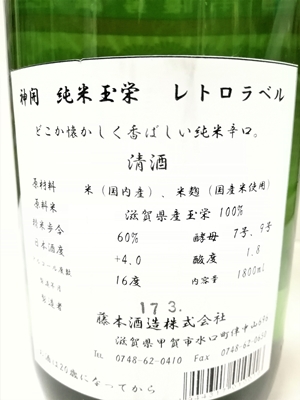 神開 純米玉栄 レトロラベル
どこか懐かしく香ばしい純米辛口。
清酒
原材料 米（国内産）、米麹（国産米使用）
原料米 滋賀県産玉栄 100%
精米歩合 60% 酵母 7号、9号
日本酒度 +4.0 酸度 1.8
アルコール度数 16度 内容量 1800ml
製造年月 17 3.
製造者 藤本酒造株式会社
滋賀県甲賀市水口町伴中山
TEL 0748-62-0410 Fax 0748-62-
お酒は20歳になってから